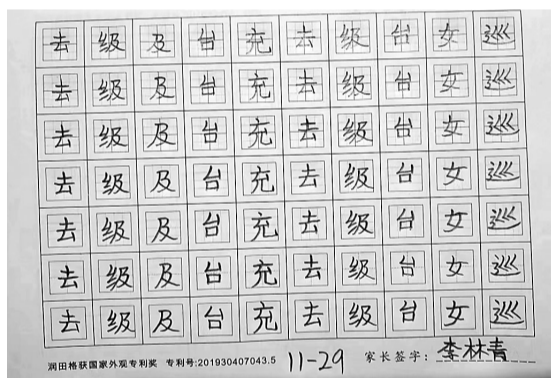 去 级 及 台 充 去 级 台 女 巡
去 级 及 台 充 去 级 台 女 巡
去 级 及 台 充 去 级 台 女 巡
去 级 及 台 充 去 级 台 女 巡
去 级 及 台 充 去 级 台 女 巡
去 级 及 台 充 去 级 台 女 巡
去 级 及 台 充 去 级 台 女 巡
润田格获国家外观专利奖 专利号:201930407043.5 11-29 家长签字: 李林青